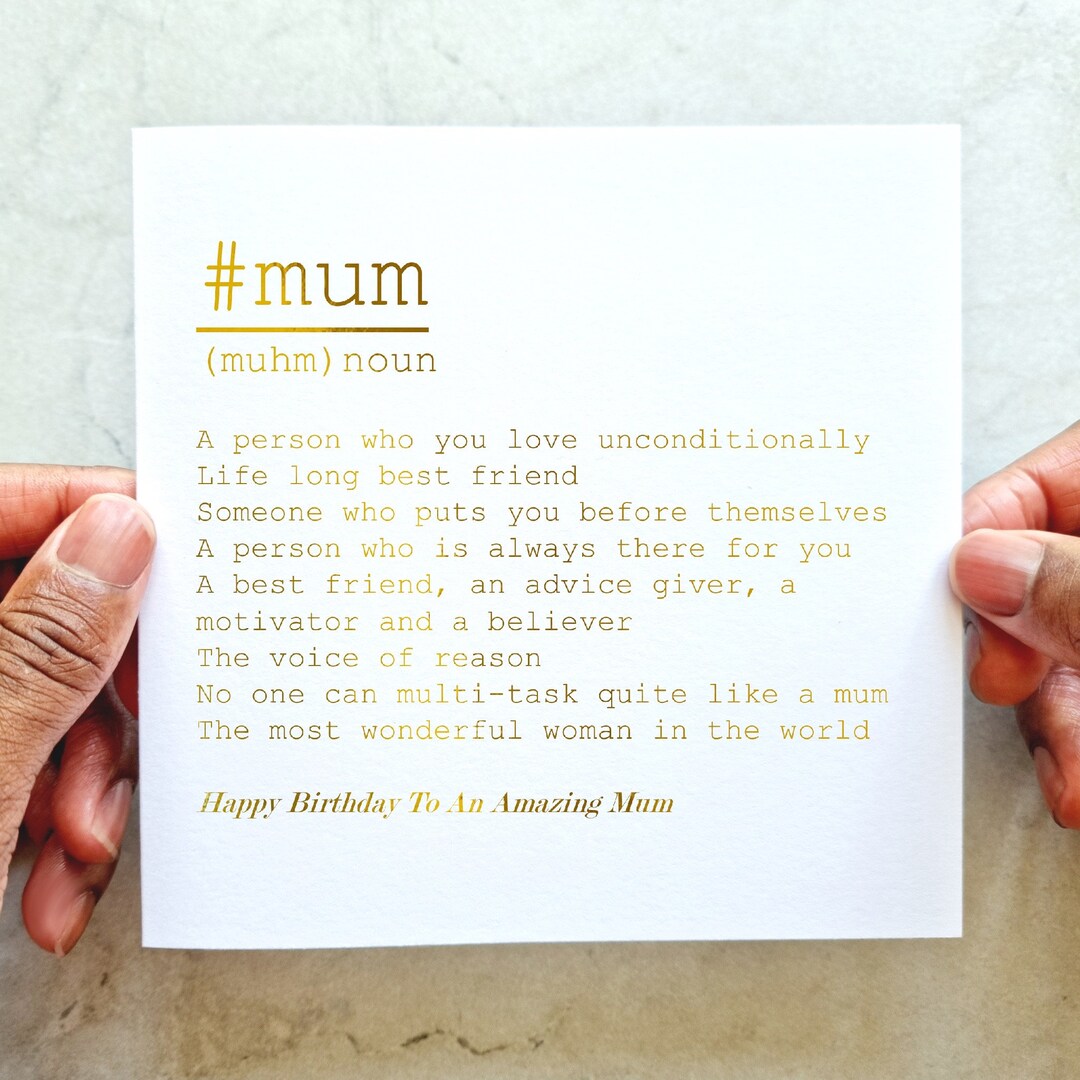 #mum
(muhm) noun
A person who you love unconditionally
Life long best friend
Someone who puts you before themselves
A person who is always there for you
A best friend, an advice giver, a
motivator and a believer
The voice of reason
No one can multi-task quite like a mum
The most wonderful woman in the world
Happy Birthday To An Amazing Mum